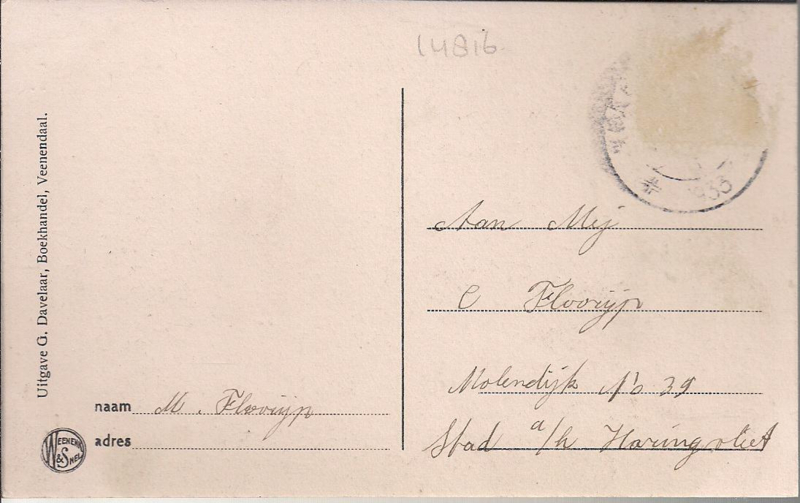 14816
Uitgave G. Davelaar, Boekhandel, Veenendaal.
933
Aan Mej
C Flooryp
Molendijk No 39
Stad a/h Haringvliet
naam M. Flooryp
adres
WEENENK & SNEL